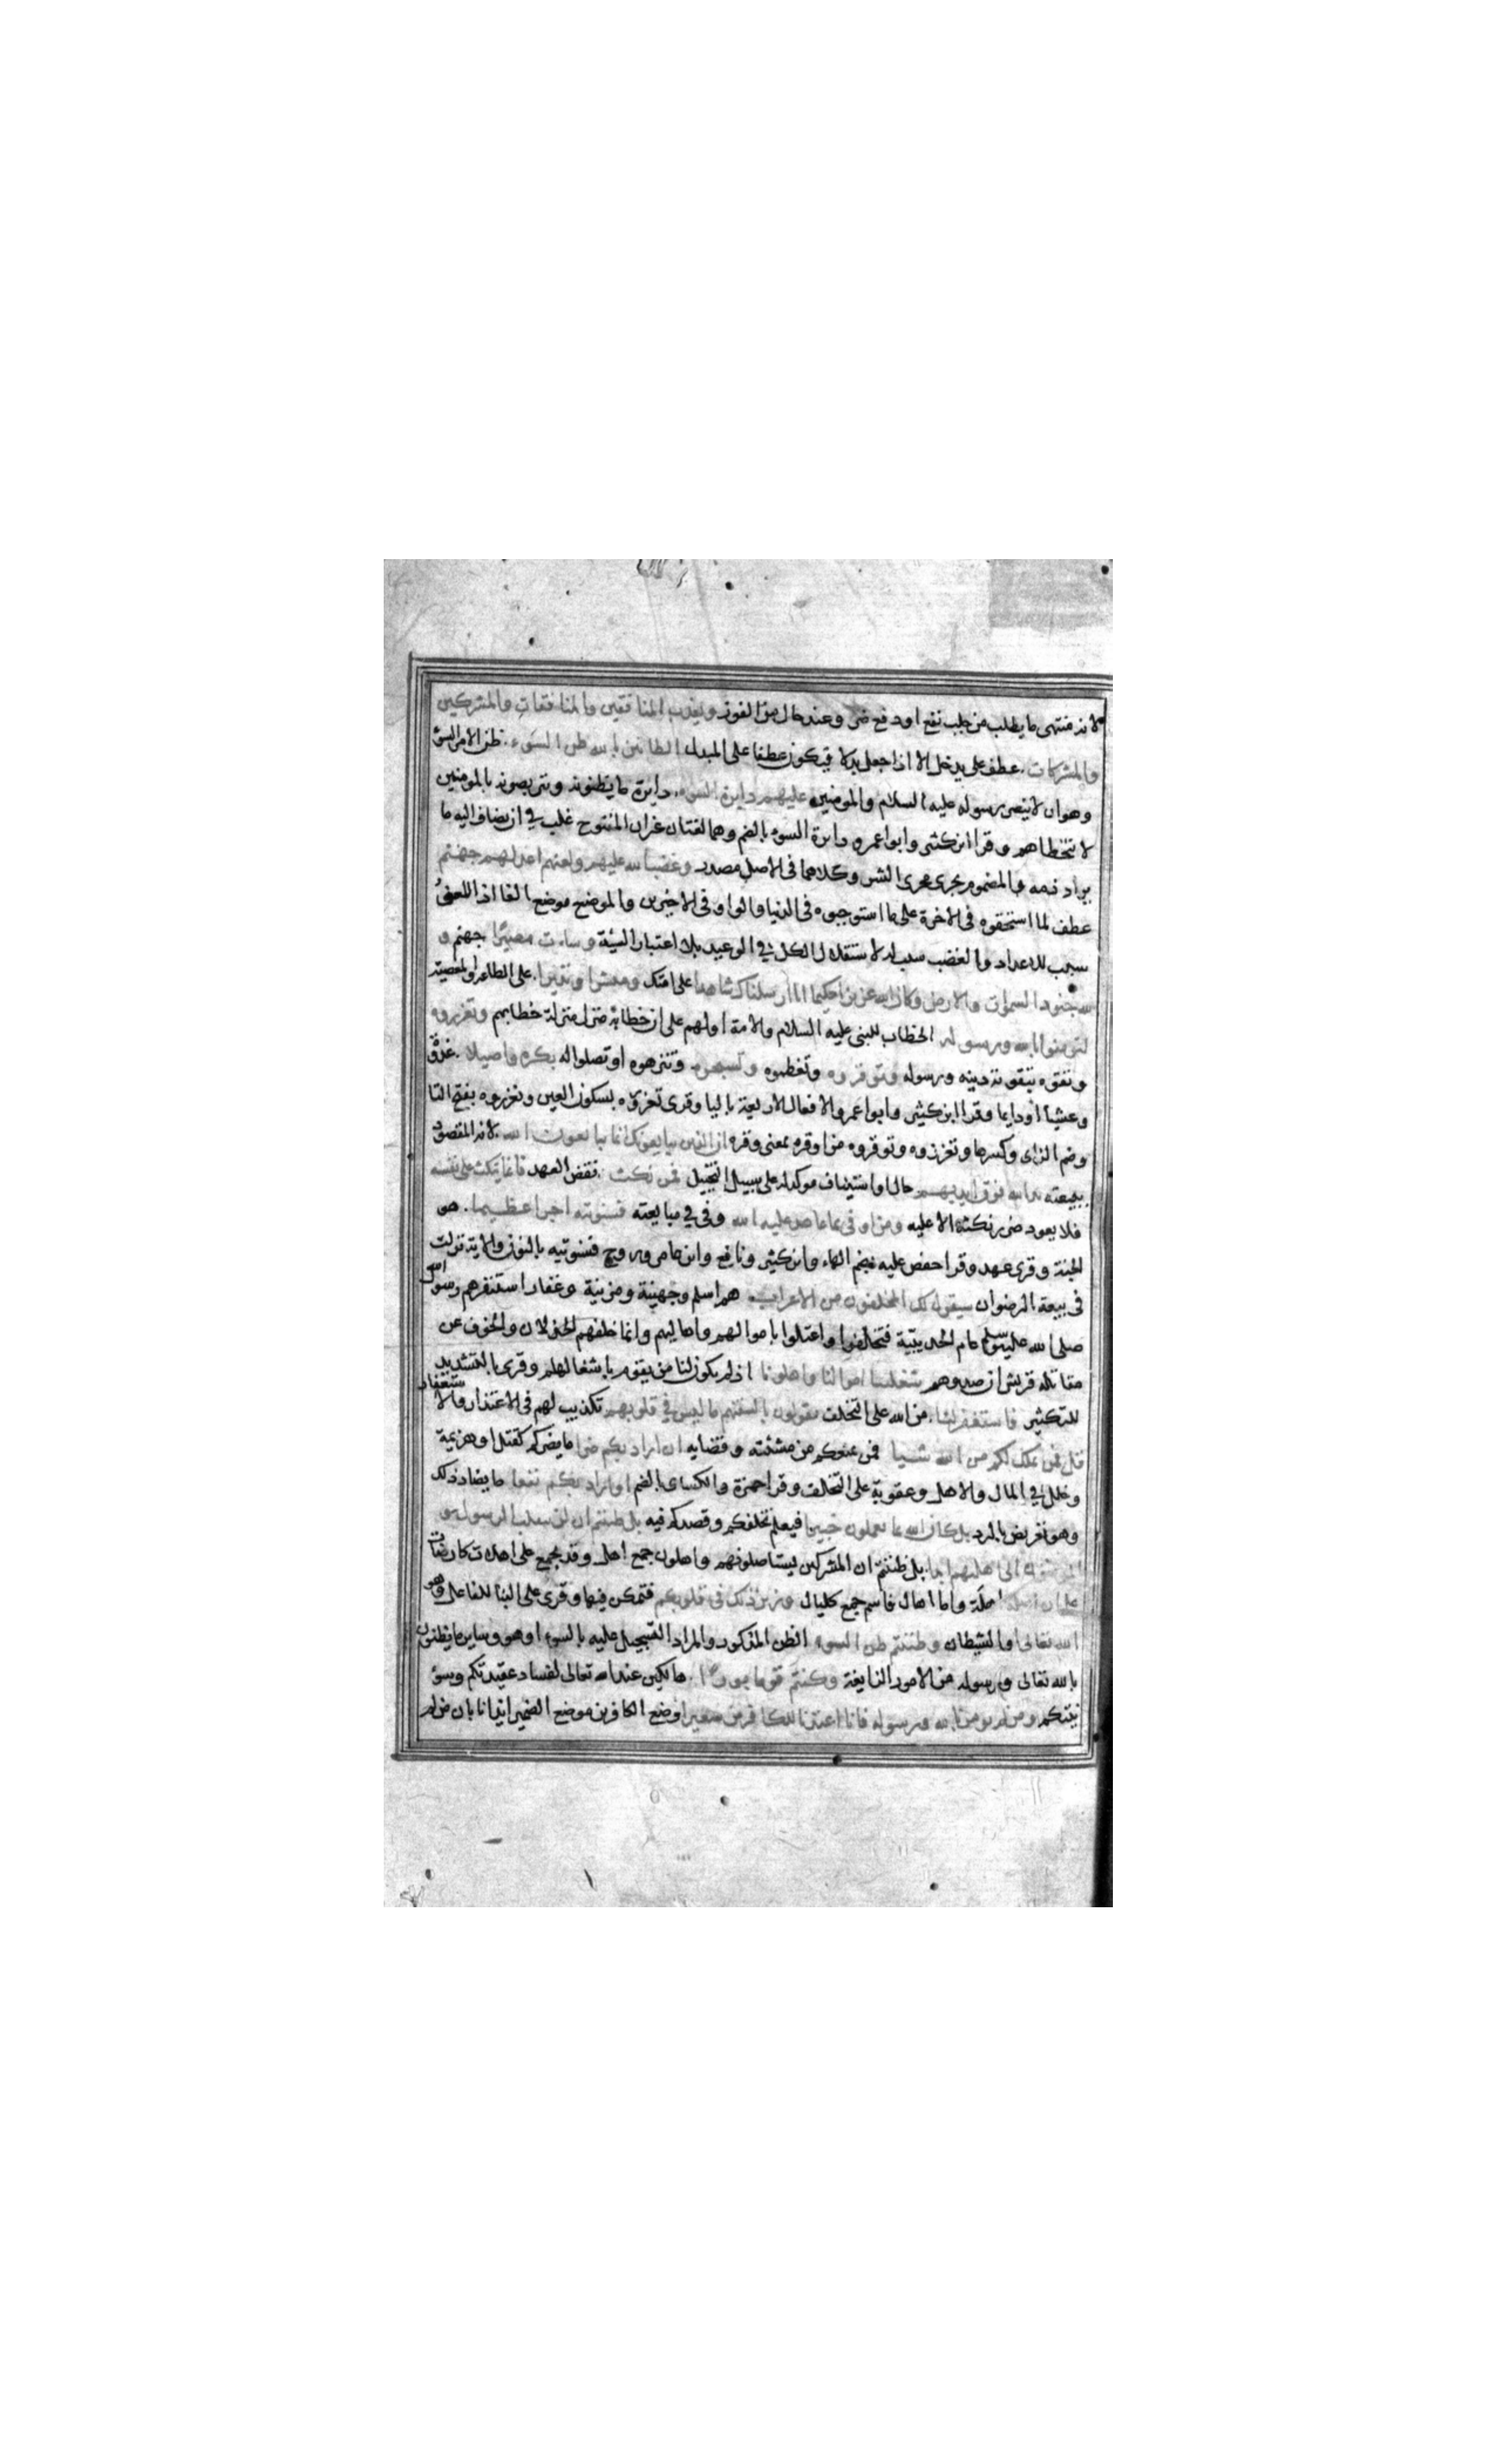 لانه منتهى ما يطلب من جلب نفع او دفع ضر وعند حال من الفوز ويعذب المنافقين والمنافقات والمشركين
والمشركات . عطف على يدخل الا اذا جعل بدلا فيكون عطفا على المبدل الظانين بالله ظن السوء . ظن الامر السوٴ
وهو ان لا ينصر رسوله عليه السلام والمومنين عليهم دايرة السوء . دايرة ما يظنونه ويتربصونه بالمومنين
لا تتخطاهم وقرا ابن كثير وابو اعمرو دائرة السوء بالضم وهما لغتان غير ان المفتوح غلب في ان يضاف اليه ما
يراد ذمه والمضموم يجرى مجرى الشر وكلاهما فى الاصل مصدر وغضب الله عليهم ولعنهم اعد لهم جهنم
عطف لما استحقوه فى الاخرة على ما استوجبوه فى الدنيا والواو فى الاخيرين والموضع موضع الفا اذ اللعن
سبب للاعداد والغضب سبب له لاستقلال الكل في الوعيد بلا اعتبار السببية وساءت مصيرًا جهنم و
لله جنود السموات والارض وكان الله عزيزا حكيما انا ارسلناك شاهدا على امتك ومبشرا ونذيرا . على الطاعة والمعصية
لتومنوا بالله ورسوله الخطاب للنبى عليه السلام والامة او لهم على ان خطابه منزل منزلة خطابهم وتعزروه
وتقوه بتقوية دينه ورسوله وتوقروه وتعظموه وتسبحوه وتنزهوه او تصلوا له بكرة واصيلا . غدوة
وعشيا او دايما وقرا ابن كثير وابو اعمرو الافعال الاربعة باليا وقرى تعزروه بسكون العين وتعزروه بفتح التا
وضم الزاى وكسرها وتعززوه وتوقروه من اوقره بمعنى وقره ان الذين يبايعونك انما يبايعون الله . لانه المقصود
ببيعته يد الله فوق ايديهم حال او استيناف موكد له على سبيل التخييل فمن نكث . نقض العهد فانما ينكث على نفسه
فلا يعود ضرر نكثه الا عليه ومن اوفى بما عاهد عليه الله وفى في مبايعته فسنوته اجرا عظيما . هو
الجنة وقرى عهد وقرا حفص عليه بضم الهاء وابن كثير ونافع وابن عامر وروح فسنوتيه بالنون والاية نزلت
فى بيعة الرضوان سيقول لك المخلفون من الاعراب . هم اسلم وجهينة ومزينة وغفار استنفرهم رسول الله
صلى الله عليه وسلم عام الحديبية فتخلفوا واعتلوا باموالهم واهاليهم وانما خلفهم الخذلان والخوف عن
مقاتلة قريش ان صدوهم شغلتنا اموالنا واهلونا اذ لم يكن لنا من يقوم باشغالهم وقرى بالتشديد
للتكثير فاستغفر لنا . من الله على التخلف يقولون بالسنتهم ما ليس في قلوبهم تكذيب لهم فى الاعتذار والاستغفار
قل فمن يملك لكم من الله شيا فمن يمنعكم من مشئته وقضايه ان اراد بكم ضرا ما يضركم كقتل او هزيمة
وخلل في المال والاهل وعقوبة على التخلف وقرا حمزة والكساى بالضم او اراد بكم نفعا ما يضاد ذلك
وهو تعريض بالرد بل كان الله بما تعملون خبيرا فيعلم تخلفكم وقصدكم فيه بل ظننتم ان لن ينقلب الرسول و
المومنون الى اهليهم ابدا . بل ظننتم ان المشركين يستاصلونهم واهلون جمع اهل وقد يجمع على اهلات كارضات
على ان اصله اهلة واما اهال فاسم جمع كليال وزين ذلك فى قلوبكم فتمكن فيها وقرى على البنا للفاعل وهو
الله تعالى او الشيطان وظننتم ظن السوء . الظن المذكور والمراد التسجيل عليه بالسوء او هو وساير ما يظنون
بالله تعالى ورسوله من الامور الزايغة وكنتم قوما بورًا . هالكين عند الله تعالى لفساد عقيدتكم وسوٴ
نيتكم ومن لم يومن بالله ورسوله فانا اعتدنا للكافرين سعيرا وضع الكافرين موضع الضمير ايذانا بان من لم